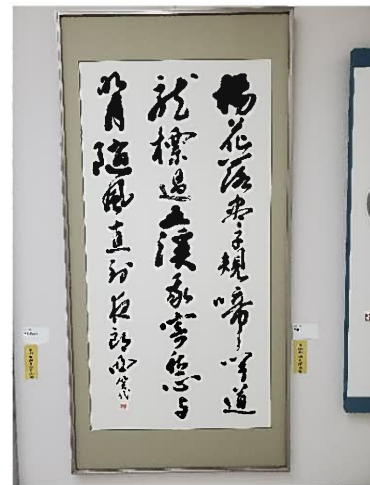 楊花落盡子規啼聞道
龍標過五溪我寄愁心与
明月隨風直到夜郎西